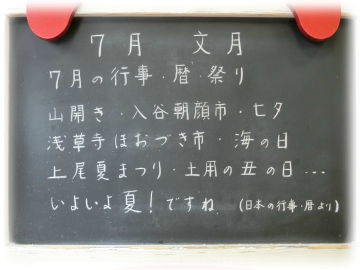 7月 文月
7月の行事・暦・祭り
山開き・入谷朝顔市・七夕
浅草寺ほおづき市・海の日
上尾夏まつり・土用の丑の日…
いよいよ夏!ですね (日本の行事・暦より)